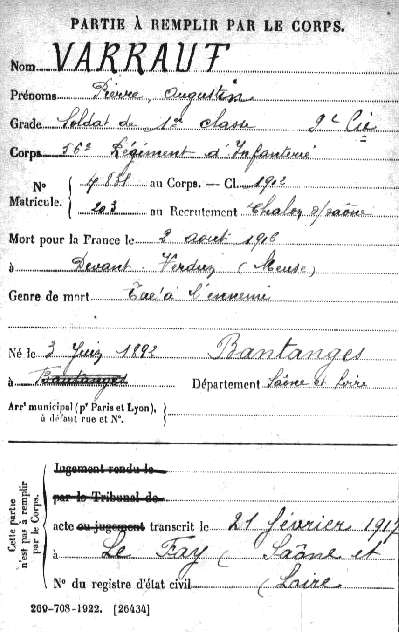 PARTIE À REMPLIR PAR LE CORPS.
Nom VARRAUT
Prénoms Pierre, Augustin
Grade Soldat de 1re classe 9e Cie
Corps 56e Régiment d'Infanterie
No Matricule. au Corps. — Cl. 1912
203 au Recrutement Chalon s/Saône
Mort pour la France le 2 août 1916
à Devant Verdun (Meuse)
Genre de mort Tué à l'ennemi
Né le 3 Juin 1892 Bantanges
à Bantanges Département Saône et Loire
Arrt municipal (pr Paris et Lyon), à défaut rue et No.
Cette partie n'est pas à remplir par le Corps.
Jugement rendu le
par le Tribunal de
acte ou jugement transcrit le 21 février 1917
à Le Fay (Saône et
No du registre d'état civil (Loire
269-708-1922. [26434]